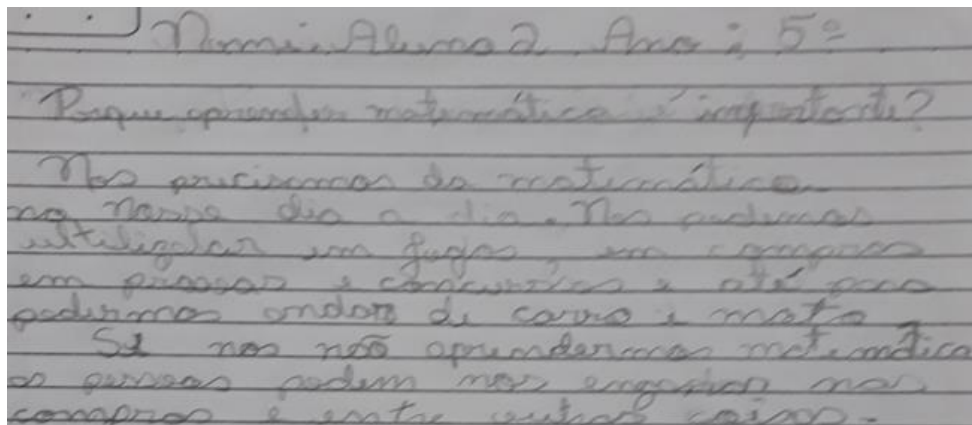 Nome: Aluno 2 Ano: 5º
Porque aprender matemática é importante?
Nos precisamos da matemática
no nosso dia a dia. Nos podemos
ultilizalar em jogos, em compras
em provas e concursos e até para
podermos andar de carro e moto
Se nos não aprendermos matemática
as pessoas podem nos enganar nas
compras e entre outras coisas.